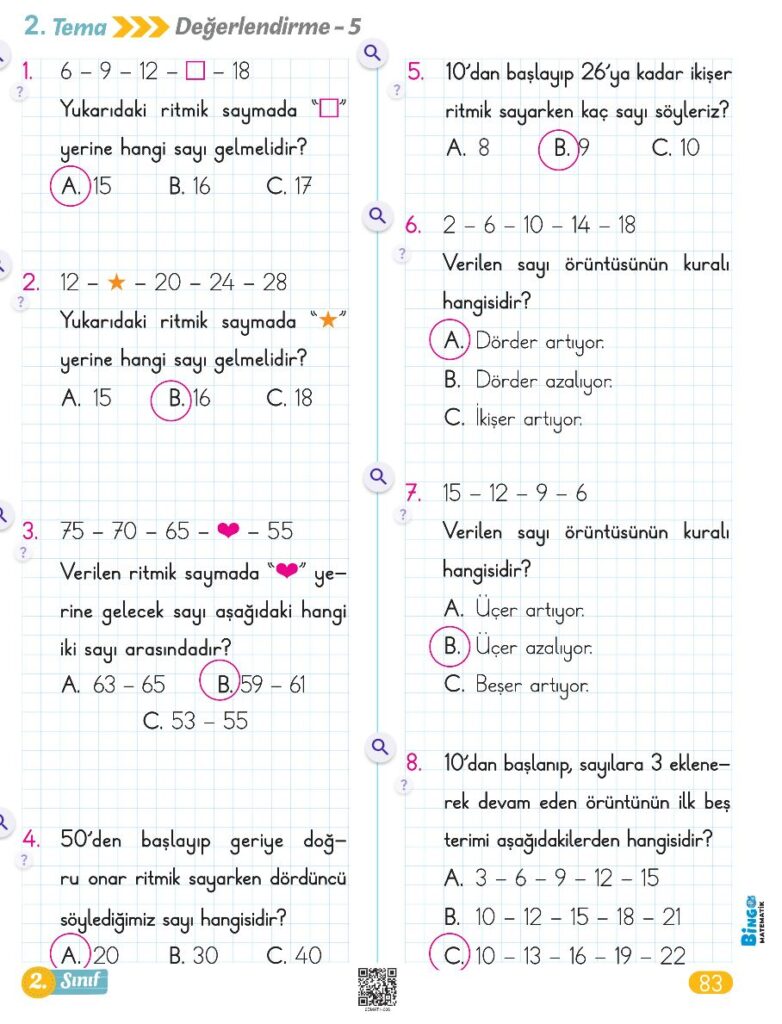 2. Tema Değerlendirme – 5
1. 6 – 9 – 12 – □ – 18
?
Yukarıdaki ritmik saymada “□”
yerine hangi sayı gelmelidir?
A. 15 B. 16 C. 17
2. 12 – ★ – 20 – 24 – 28
?
Yukarıdaki ritmik saymada “★”
yerine hangi sayı gelmelidir?
A. 15 B. 16 C. 18
3. 75 – 70 – 65 – ❤ – 55
?
Verilen ritmik saymada “❤” ye–
rine gelecek sayı aşağıdaki hangi
iki sayı arasındadır?
A. 63 – 65 B. 59 – 61
C. 53 – 55
4. 50’den başlayıp geriye doğ–
?
ru onar ritmik sayarken dördüncü
söylediğimiz sayı hangisidir?
A. 20 B. 30 C. 40
5. 10’dan başlayıp 26’ya kadar ikişer
?
ritmik sayarken kaç sayı söyleriz?
A. 8 B. 9 C. 10
6. 2 – 6 – 10 – 14 – 18
?
Verilen sayı örüntüsünün kuralı
hangisidir?
A. Dörder artıyor.
B. Dörder azalıyor.
C. İkişer artıyor.
7. 15 – 12 – 9 – 6
?
Verilen sayı örüntüsünün kuralı
hangisidir?
A. Üçer artıyor.
B. Üçer azalıyor.
C. Beşer artıyor.
8. 10’dan başlanıp, sayılara 3 eklene–
?
rek devam eden örüntünün ilk beş
terimi aşağıdakilerden hangisidir?
A. 3 – 6 – 9 – 12 – 15
B. 10 – 12 – 15 – 18 – 21
C. 10 – 13 – 16 – 19 – 22
BİNGO
MATEMATİK
2. Sınıf
83